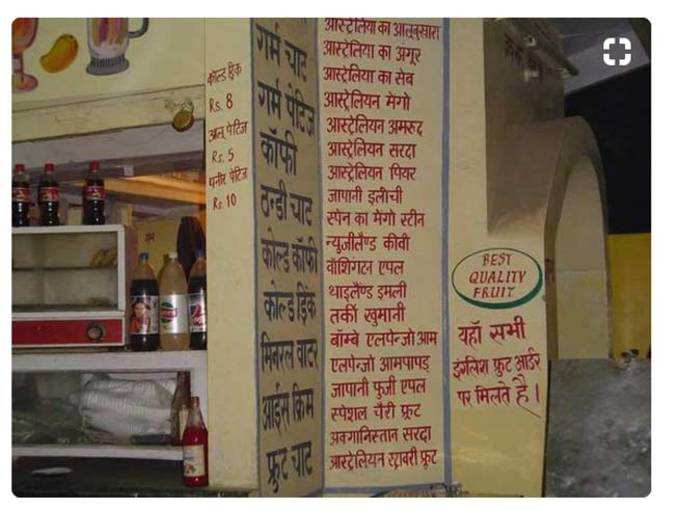 कोल्ड ड्रिंक
Rs. 8
आलू पेटिज
Rs. 5
पनीर पेटिज
Rs. 10
गर्म चाट
गर्म पेटिज
कॉफी
ठन्डी चाट
कोल्ड कॉफी
कोल्ड ड्रिंक
मिनरल वाटर
आईस क्रिम
फ्रुट चाट
आस्ट्रेलिया का आलूबुखारा
आस्ट्रेलिया का अंगूर
आस्ट्रेलिया का सेव
आस्ट्रेलियन मेंगो
आस्ट्रेलियन अमरुद
आस्ट्रेलियन सरदा
आस्ट्रेलियन पियर
जापानी इलीची
स्पेन का मेंगो स्टीन
न्युजीलैण्ड कीवी
वॉशिंगटन एपल
थाइलैण्ड इमली
तर्की खुमानी
बॉम्बे एलपेन्जो आम
एलपेन्जो आमपापड़
जापानी फुजी एपल
स्पेशल चैरी फ्रुट
अवगानिस्तान सरदा
आस्ट्रेलियन स्ट्रावरी फ्रुट
BEST
QUALITY
FRUIT
यहाँ सभी
इंगलिश फ्रुट आर्डर
पर मिलते है।